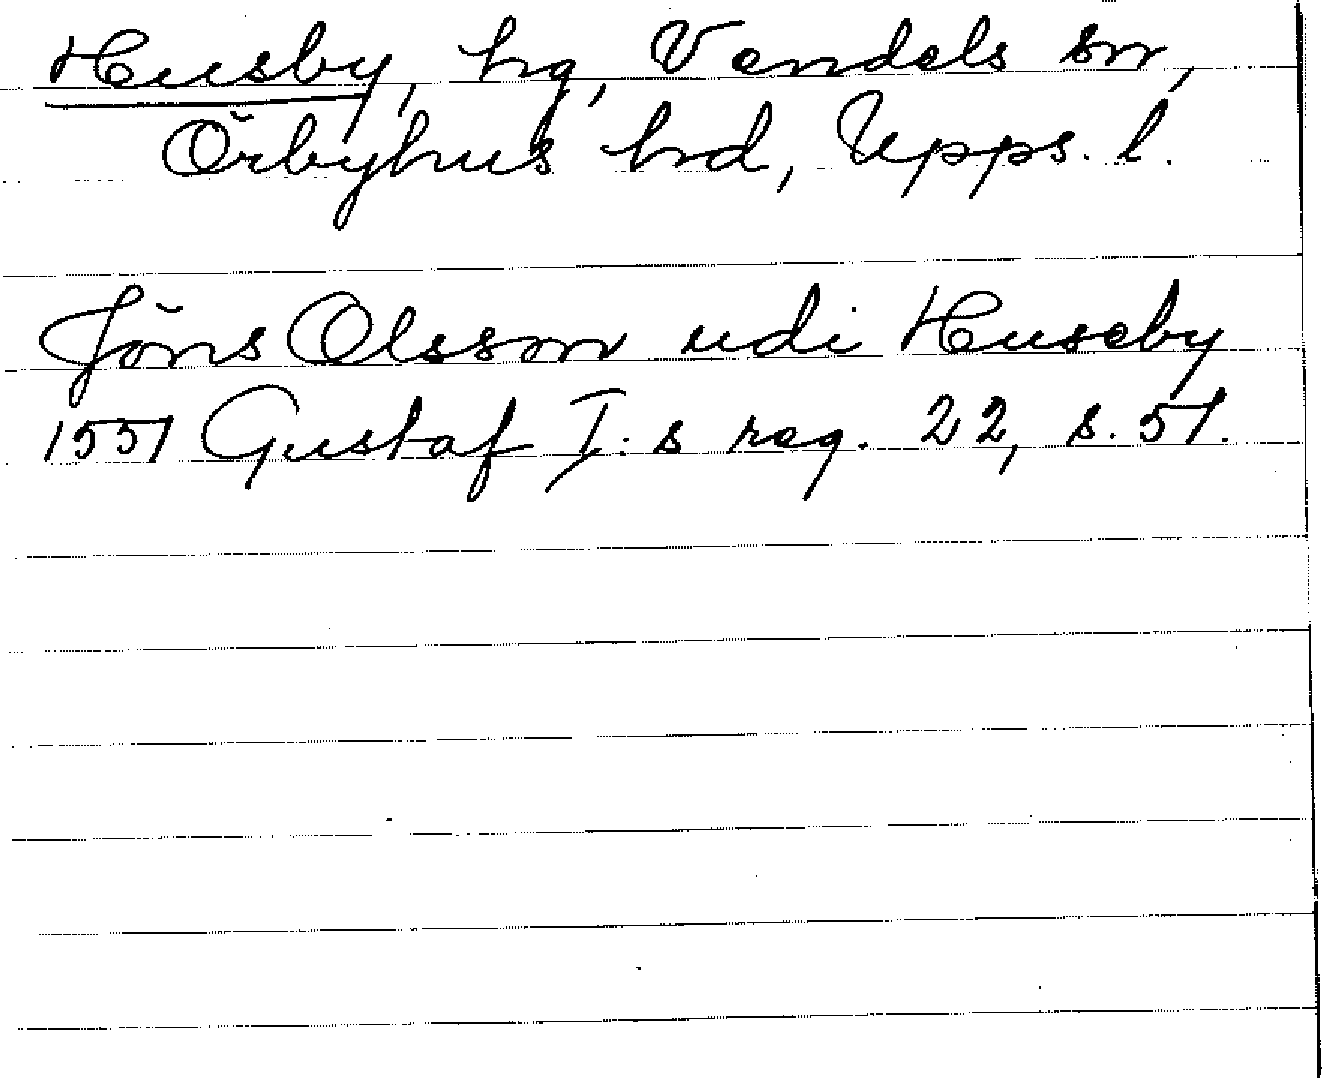 Husby, hg, Vendels sn,
Örbyhus hd, Upps. l.
Jöns Olsson udi Huseby
1551 Gustaf I:s reg. 22, s. 51.